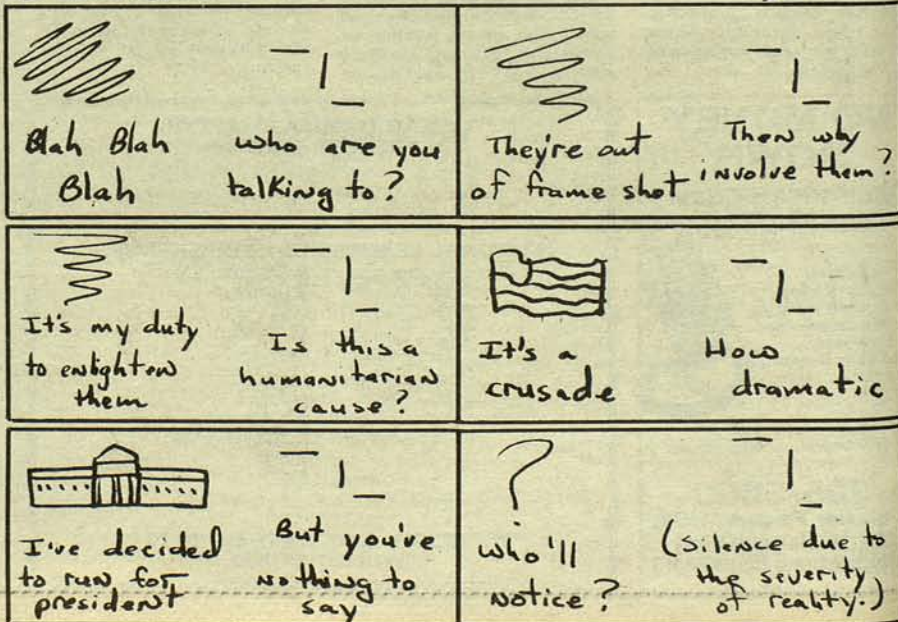 Blah Blah
Blah
who are you
talking to?
They're out
of frame shot
Then why
involve them?
It's my duty
to enlighten
them
Is this a
humanitarian
cause?
It's a
crusade
How
dramatic
I've decided
to run for
president
But you've
nothing to
say
who'll
notice?
(silence due to
the severity
of reality.)